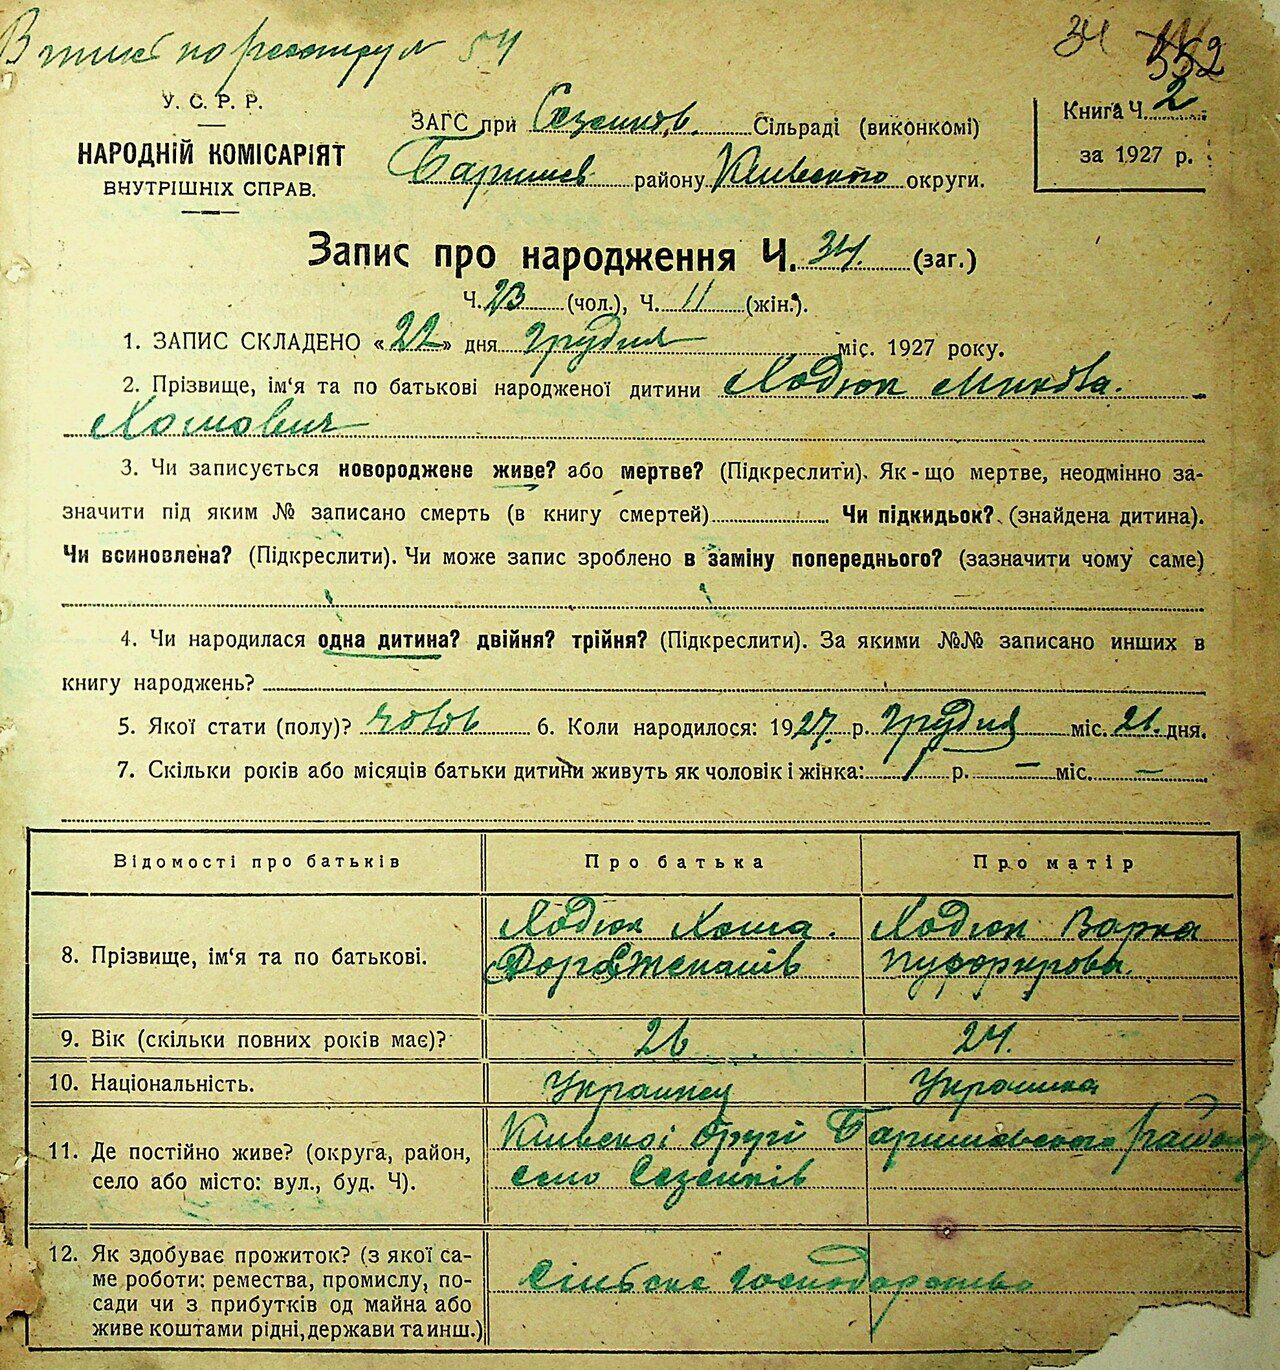 по реєстру 54
34 552
У. С. Р. Р.
НАРОДНІЙ КОМІСАРІЯТ
ВНУТРІШНІХ СПРАВ.
ЗАГС при Сезенків. Сільраді (виконкомі)
Баришев району Київського округи.
Книга Ч. 2
за 1927 р.
Запис про народження Ч. 34. (заг.)
Ч. 23 (чол.), Ч. 11 (жін.).
1. ЗАПИС СКЛАДЕНО «22» дня грудня міс. 1927 року.
2. Прізвище, ім‘я та по батькові народженої дитини Ходюк Микола.
Хомович
3. Чи записується новороджене живе? або мертве? (Підкреслити). Як-що мертве, неодмінно за-
значити під яким № записано смерть (в книгу смертей) Чи підкидьок? (знайдена дитина).
Чи всиновлена? (Підкреслити). Чи може запис зроблено в заміну попереднього? (зазначити чому саме)
4. Чи народилася одна дитина? двійня? трійня? (Підкреслити). За якими №№ записано инших в
книгу народжень?
5. Якої стати (полу)? чолов 6. Коли народилося: 1927. р. грудня міс. 21. дня.
7. Скільки років або місяців батьки дитини живуть як чоловік і жінка: р. — міс. —
Відомості про батьків Про батька Про матір
8. Прізвище, ім‘я та по батькові.
Ходюк Хома. Ходюк Варка
9. Вік (скільки повних років має)? 26 24.
10. Національність. Украинец Украинка
11. Де постійно живе? (округа, район,
село або місто: вул., буд. Ч).
Київскоі округі Баришовського району
село Сезенків
12. Як здобуває прожиток? (з якої са-
ме роботи: ремества, промислу, по-
сади чи з прибутків од майна або
живе коштами рідні, держави та инш.)
сільске господарство